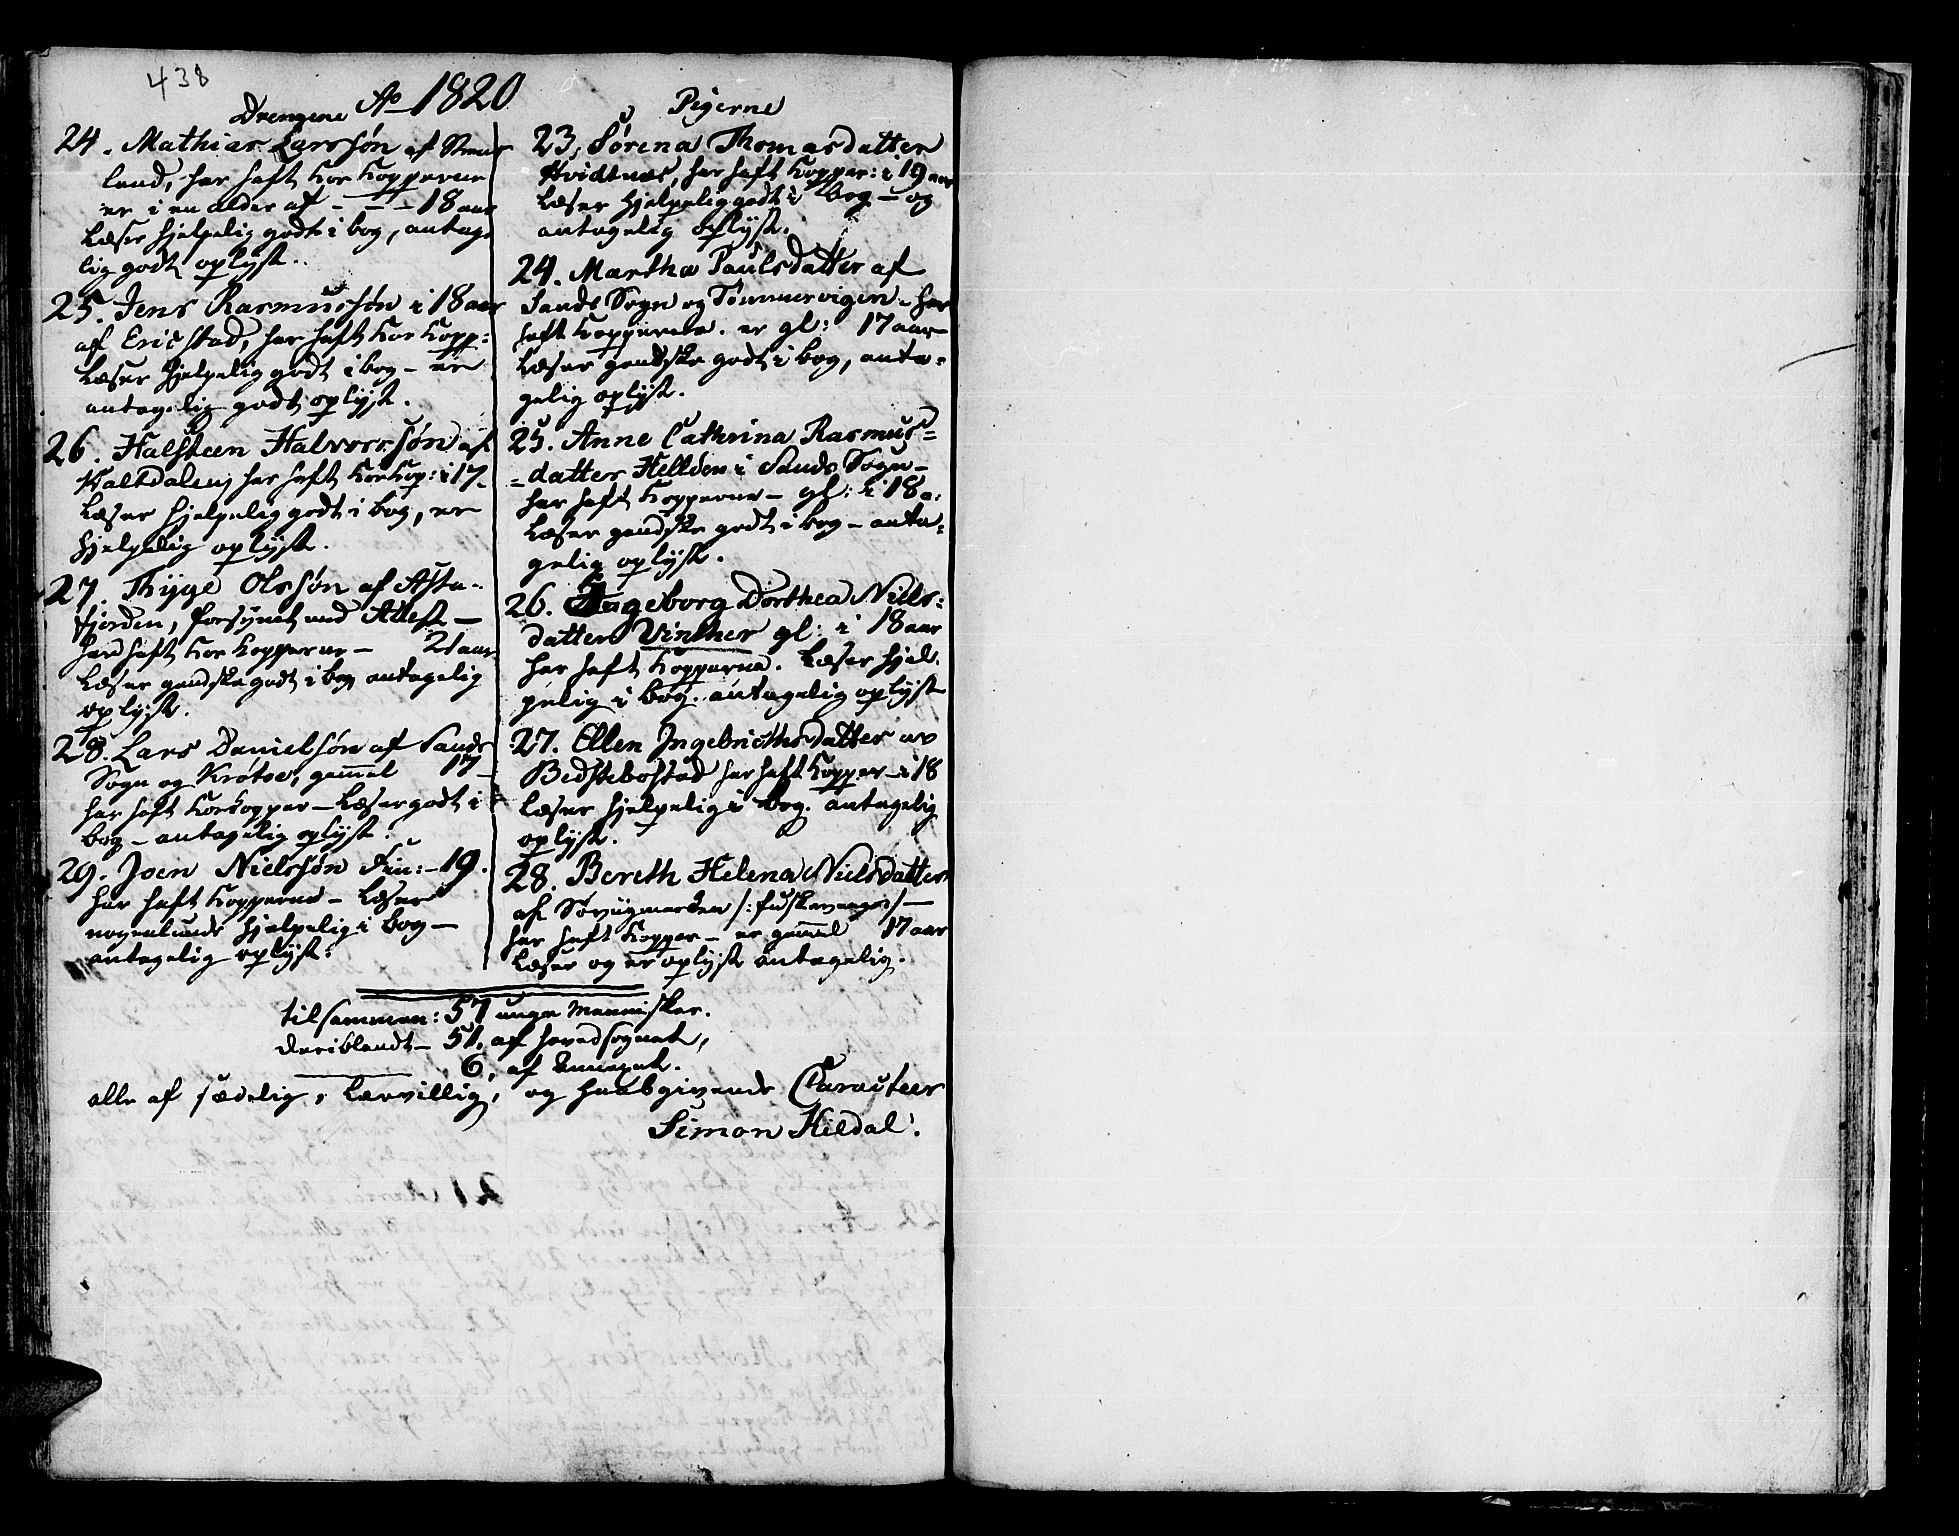 438
Ao 1820
Drengene
24. Mathias Larssøn af Stens
land, har haft Kor Kopperne
er i en alder af - - - 18 aar
Læser hjelpelig godt i bog, antage
lig godt oplyst.
25. Jens Rasmussøn i 18 aar
af Ericstad, har haft Kor Kopp:
Læser hjelpelig godt i bog - er
antagelig godt oplyst.
26. Halsteen Halvorssøn af
har haft KorKop: i 17-
Læser hjelpelig godt i bog, er
hjelpelig oplyst.
27. Thyge Olssøn af Asta-
fjorden, forsynet med Attest -
har haft Kor Kopperne - 21 aar
Læser gandske godt i bog antagelig
oplyst.
28. Lars Danielsøn af Sands
Sogn og Krøtøe, gammel 17-
har haft Korkopper - Læser godt i
bog - antagelig oplyst.
29. Joen Nielssøn Fin: - 19.
har haft Kopperne - Læser
nogenlunde hjelpelig i bog -
antagelig oplyst.
Pigerne
23, Sørena Thomasdatter
Hvidtnæs, har haft Kopper: i 19 aar
Læser hjelpelig godt i bog - og
antagelig oplyst.
24. Martha Paulsdatter af
Sands Sogn og Tømmervigen - har
haft Kopperne. er gl: 17 aar
Læser gandske godt i bog, anta-
gelig oplyst.
25. Anne Cathrina Rasmus=
=datter Hellden i Sands Sogn -
har haft Kopperne - gl: i 18 a:
Læser gandske godt i bog - anta-
gelig oplyst.
26. Ingeborg Dorthea Niels=
datter Vinther gl: i 18 aar
har haft Kopperne. Læser hjel-
pelig i bog. antagelig oplyst
27. Ellen Ingebricthsdatter av
Bedstebostad har haft Kopper - i 18
læser hjelpelig i bog. antagelig
oplyst.
28. Bereth Helena Nielsdatter
af Sørviigmarken
har haft Kopper - er gammel 17 aar
Læser og er oplyst antagelig.
tilsammen: 57 unge Mennisker.
deriblandt - 51, af hovedsognet,
6, af Annexet.
alle af sædelig, lærvillig, og haabgivende Caracteer
Simon Kildal.